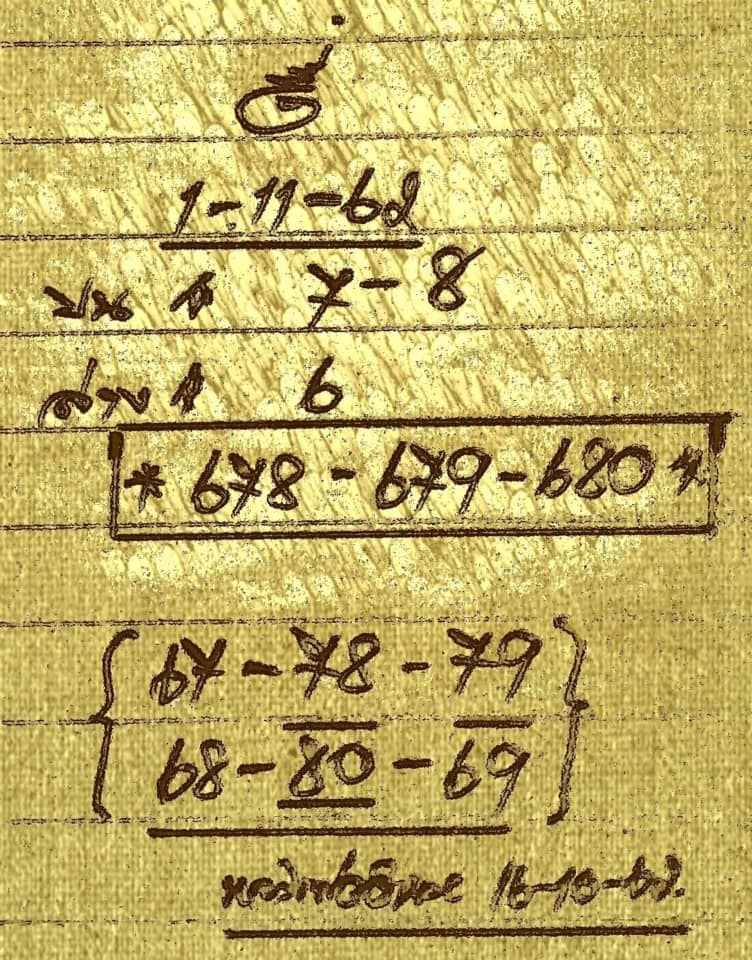 1-11-62
บน 7-8
ล่าง 6
* 678 - 679 - 680 *
67 - 78 - 79
68 - 80 - 69
16-10-62